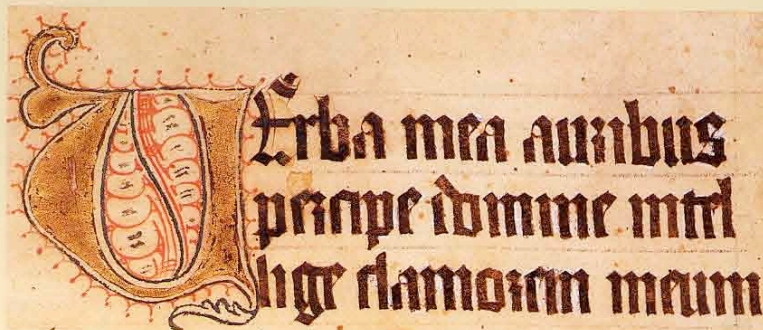 VErba mea auribus
percipe domine intel
lige clamorem meum